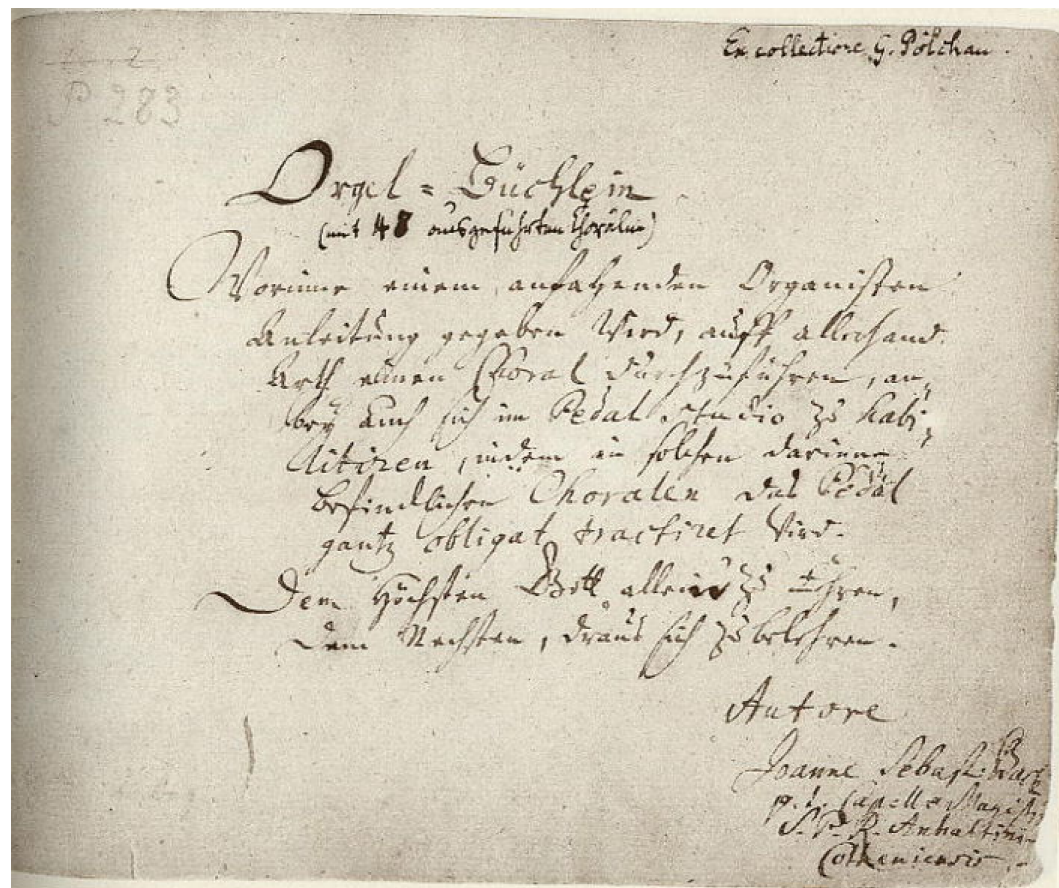 Ex collectione G. Pölchau.
P 283
Orgel=Büchlein
(mit 48 ausgeführten Chorälen)
Worinne einem anfahenden Organisten
Anleitung gegeben wird, auff allerhand
Arth einen Choral durchzuführen, an-
bey auch sich im Pedal studio zu habi-
litiren, indem in solchen darinne
befindlichen Choralen das Pedal
gantz obligat tractiret wird.
Dem Höchsten Gott allein zu Ehren,
Dem Nechsten, draus sich zu belehren.
Autore
Joanne Sebast. Bach
p. t. Capellæ Magistro
S. P. R. Anhaltini-
Cotheniensis.